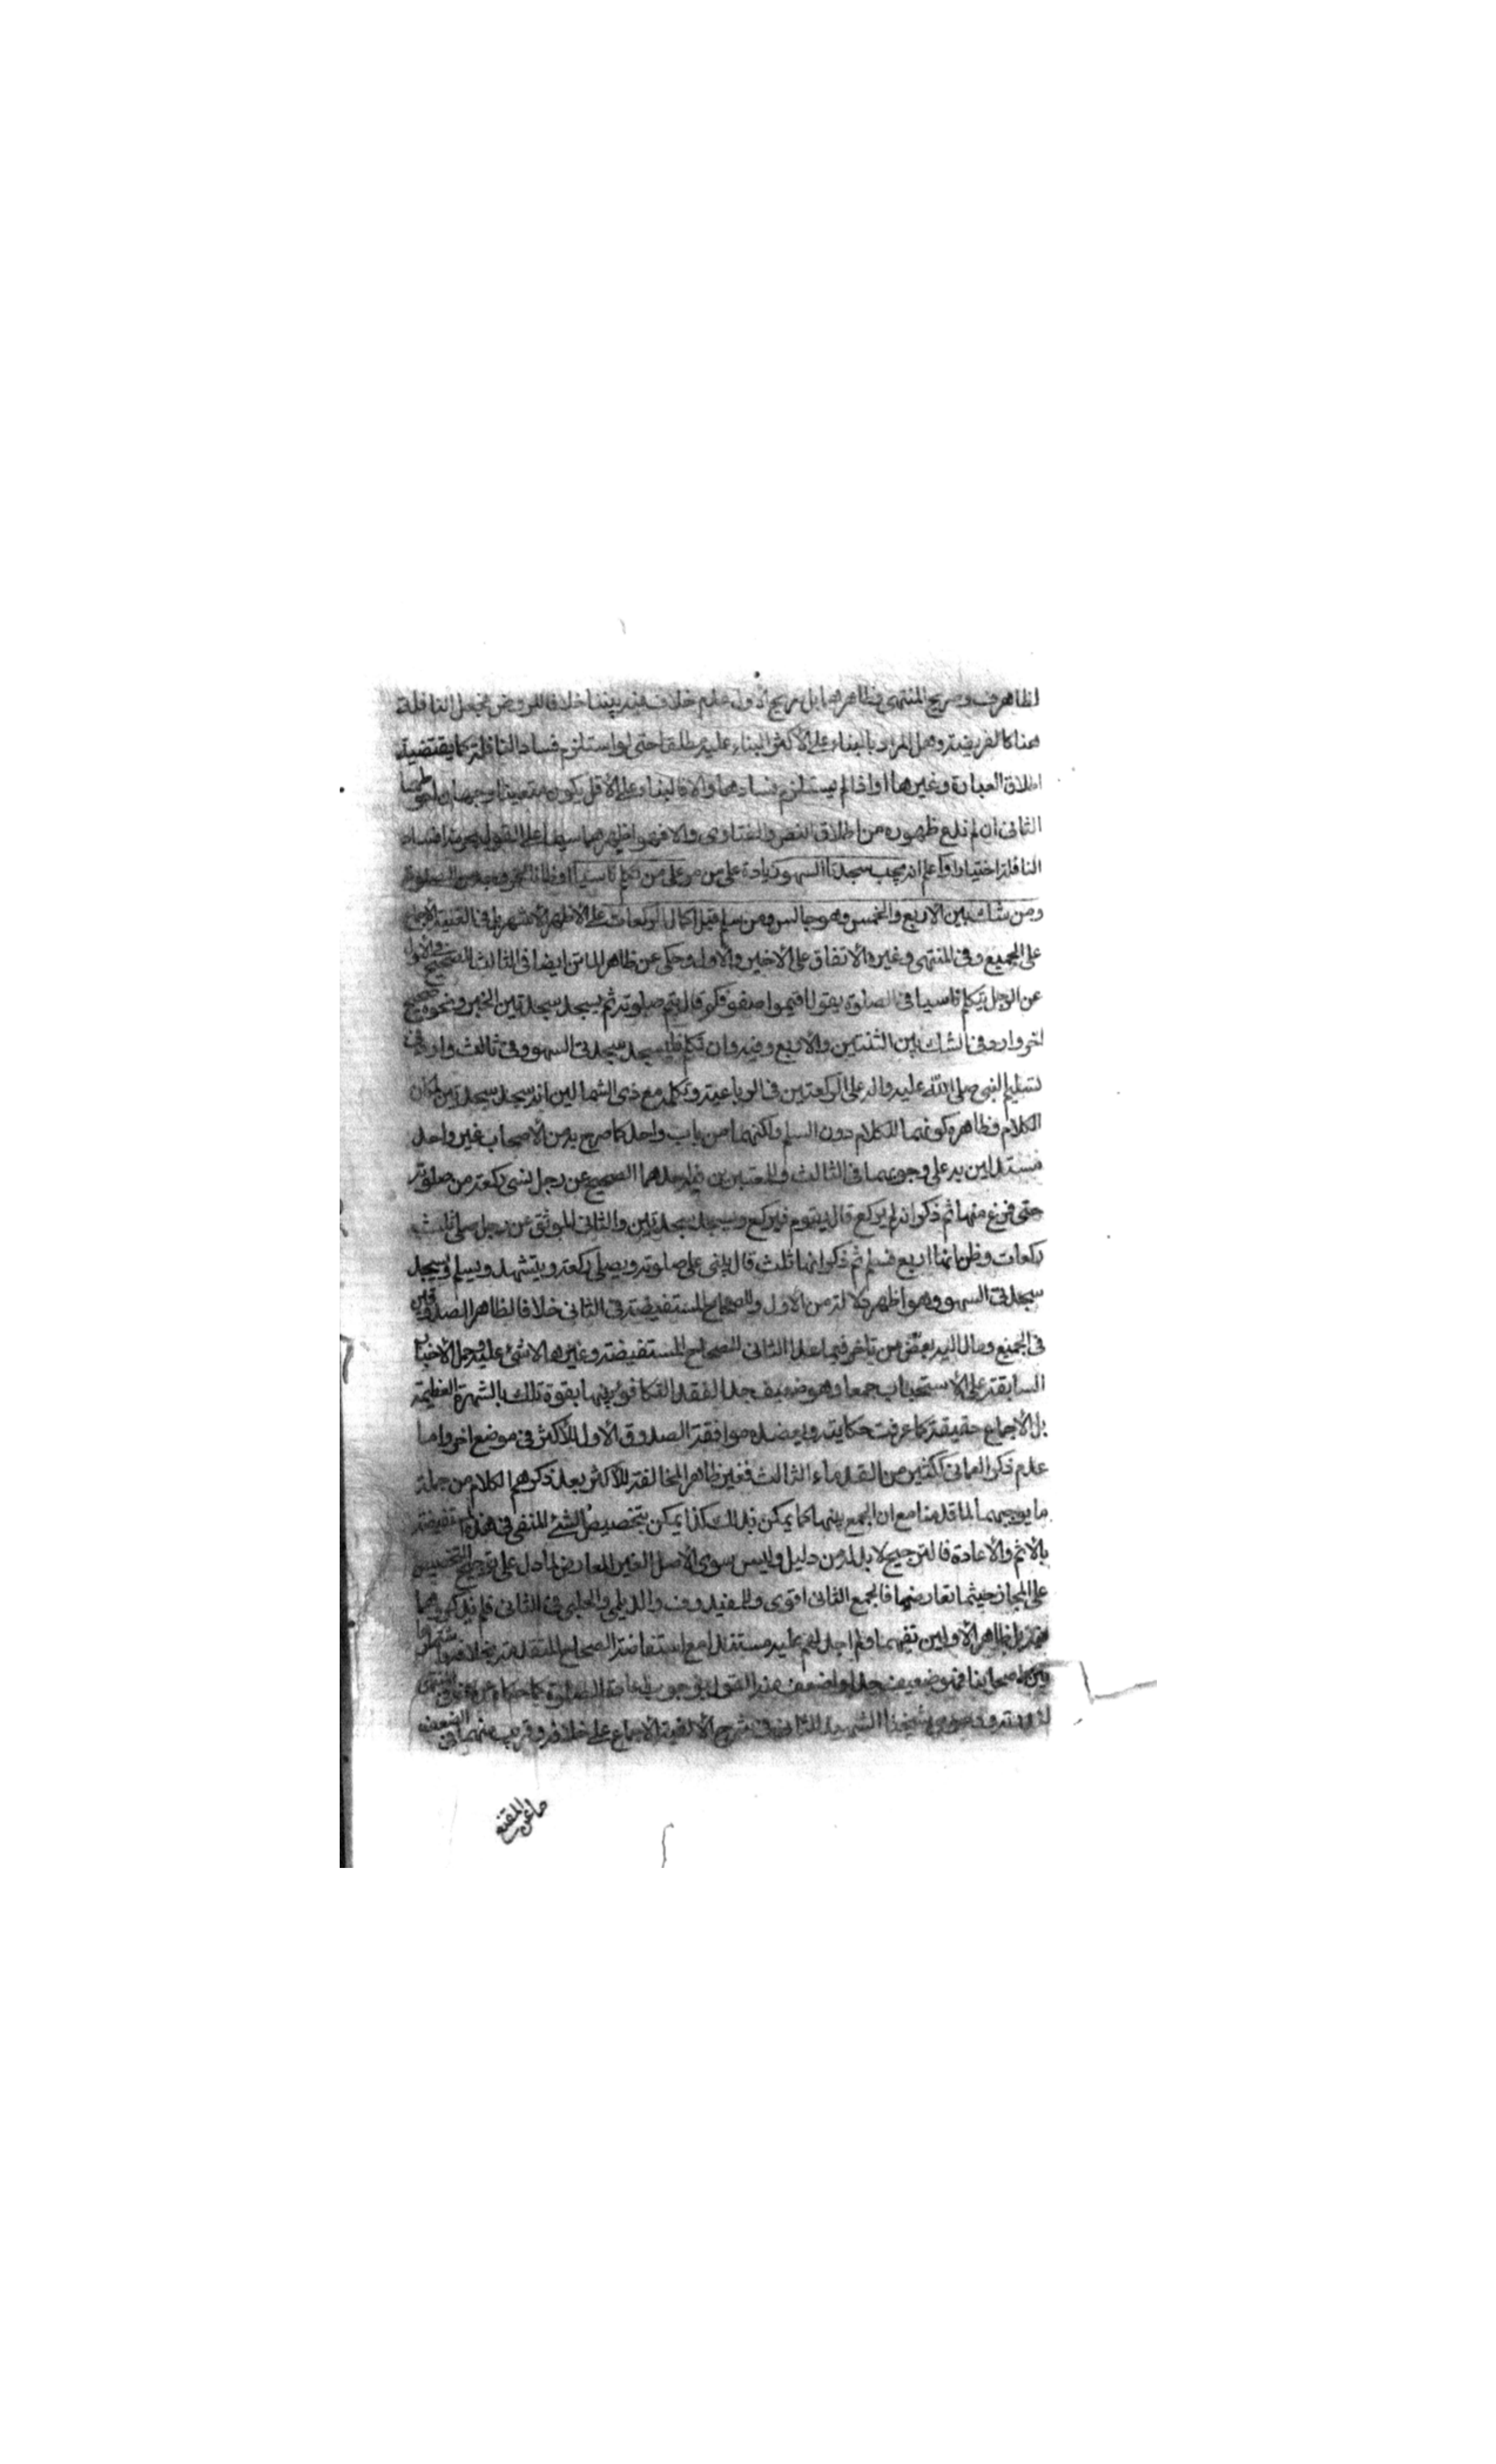 لظاهرف وصريح المنتهى فظاهرهما بل صريح الاول عدم خلاف فيه بيننا خلافا للصدوق فجعل النافلة
هنا كالفريضة وهل المراد بالبناء على الأكثر البناء عليه مطلقا حتى لو استلزم فساد النافلة كما يقتضيه
اطلاق العبارة وغيرها او اذا لم يستلزم فسادها والا فالبناء على الأقل يكون متعينا وجهان
الثانى ان لم ندع ظهوره من اطلاق النص والفتاوى والا فهو اظهرهما سيما على القول بحرمة افساد
النافلة اختيارا واعلم انه يجب سجدتا السهو زيادة على من مر على من تكلم ناسيا
ومن شك بين الاربع والخمس وهو جالس ومن سلم قبل اكمال الركعات على الأظهر الأشهر بل فى الغنية الأجماع
على الجميع وفى المنتهى وغيره الأتفاق على الأخيرين والأول وحكى عن ظاهر الماتن ايضا فى الثالث الصحيح فى الأول
عن الرجل يتكلم ناسيا فى الصلوة يقول اقيموا صفوفكم قال يتم صلوته ثم يسجد سجدتين الخبر ونحوه صحيح
اخر وارد فى الشك بين الثنتين والأربع وفيه وان تكلم فليسجد سجدتى السهو وفى ثالث وارد فى
تسليم النبى صلى الله عليه واله على الركعتين فى الرباعية وتكلمه مع ذى الشمالين انه سجد سجدتين لمكان
الكلام وظاهره كونهما للكلام دون السلام ولكنهما من باب واحد كما صرح به من الأصحاب غير واحد
مستدلين به على وجوبهما فى الثالث والمعتبرين فى احدهما الصحيح عن رجل نسى ركعة من صلوته
حتى فرغ منها ثم ذكر انه لم يركع قال يقوم فيركع ويسجد سجدتين والثانى الموثق عن رجل صلى ثلث
ركعات وظن انها اربع فسلم ثم ذكر انها ثلث قال يبنى على صلوته ويصلى ركعة ويتشهد ويسلم ويسجد
سجدتى السهو وهو اظهر دلالة من الأول والصحاح المستفيضة فى الثانى خلافا لظاهر الصدوقين
فى الجميع ومال اليه بعض من تاخر فيما عدا الثانى للصحاح المستفيضة وغيرها لا شئ عليه وحمل الأخبار
السابقة على الأستحباب جمعا وهو ضعيف جدا لفقد التكافؤ بينها بقوة تلك بالشهرة العظيمة
بل الأجماع حقيقة كما عرفت حكايته ويعضده موافقة الصدوق الأول للأكثر فى موضع اخر واما
عدم ذكر العمانى ككثير من القدماء الثالث فغير ظاهر المخالفة للأكثر بعد ذكرهم الكلام من جملة
ما يوجبهما لما قدمنا مع ان الجمع بينهما كما يمكن بذلك كذا يمكن بتخصيص الشئ المنفى فى هذه المستفيضة
بالأثم والأعادة فالترجيح لا بد له من دليل وليس سوى الأصل الغير المعارض لما دل على ترجيح التخصيص
على المجاز حيثما تعارضا فالجمع الثانى اقوى وللمفيد وف والديلمى والحلبى فى الثانى فلم يذكروهما
فيه بل ظاهر الأولين نفيهما ولم اجد لهم عليه مستندا مع استفاضة الصحاح المتقدمة بخلافه
بين اصحابنا فهو ضعيف جدا واضعف منه القول بوجوب اعادة الصلوة كما حكاه
شيخنا الشهيد الثانى فى شرح الألفية الأجماع على خلافه وقريب منهما فى الضعف
ما عن المقنع